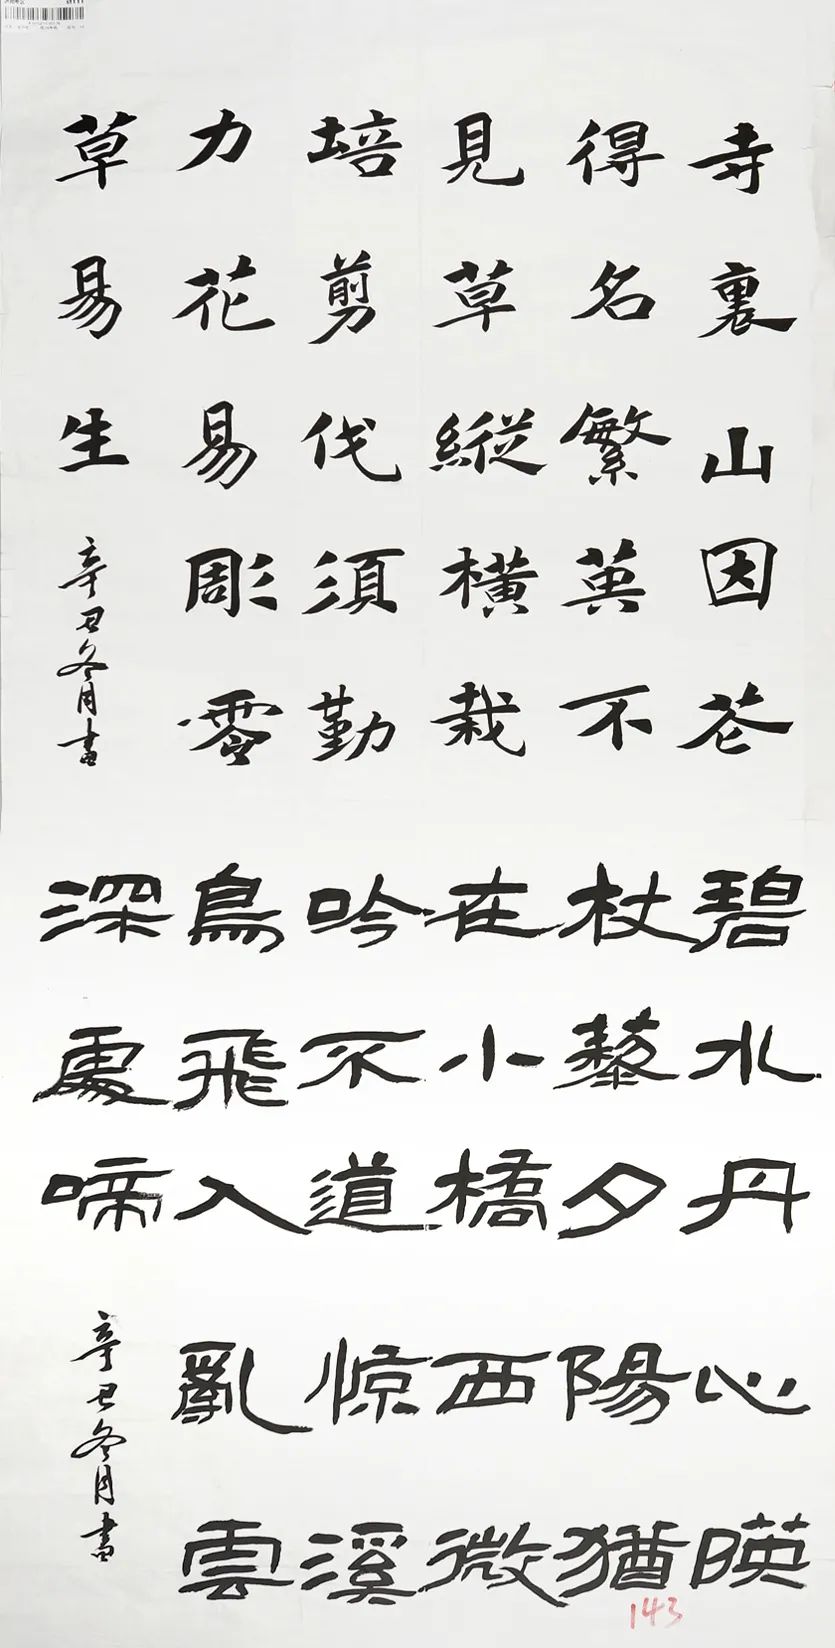 寺裏山因花
得名繁英不
見草縱橫栽
培剪伐須勤
力花易彫零
草易生
辛丑冬月書
碧水丹心暎
杖藜夕陽猶
在小橋西微
吟不道惊溪
鳥飛入亂雲
深處啼
辛丑冬月書
143